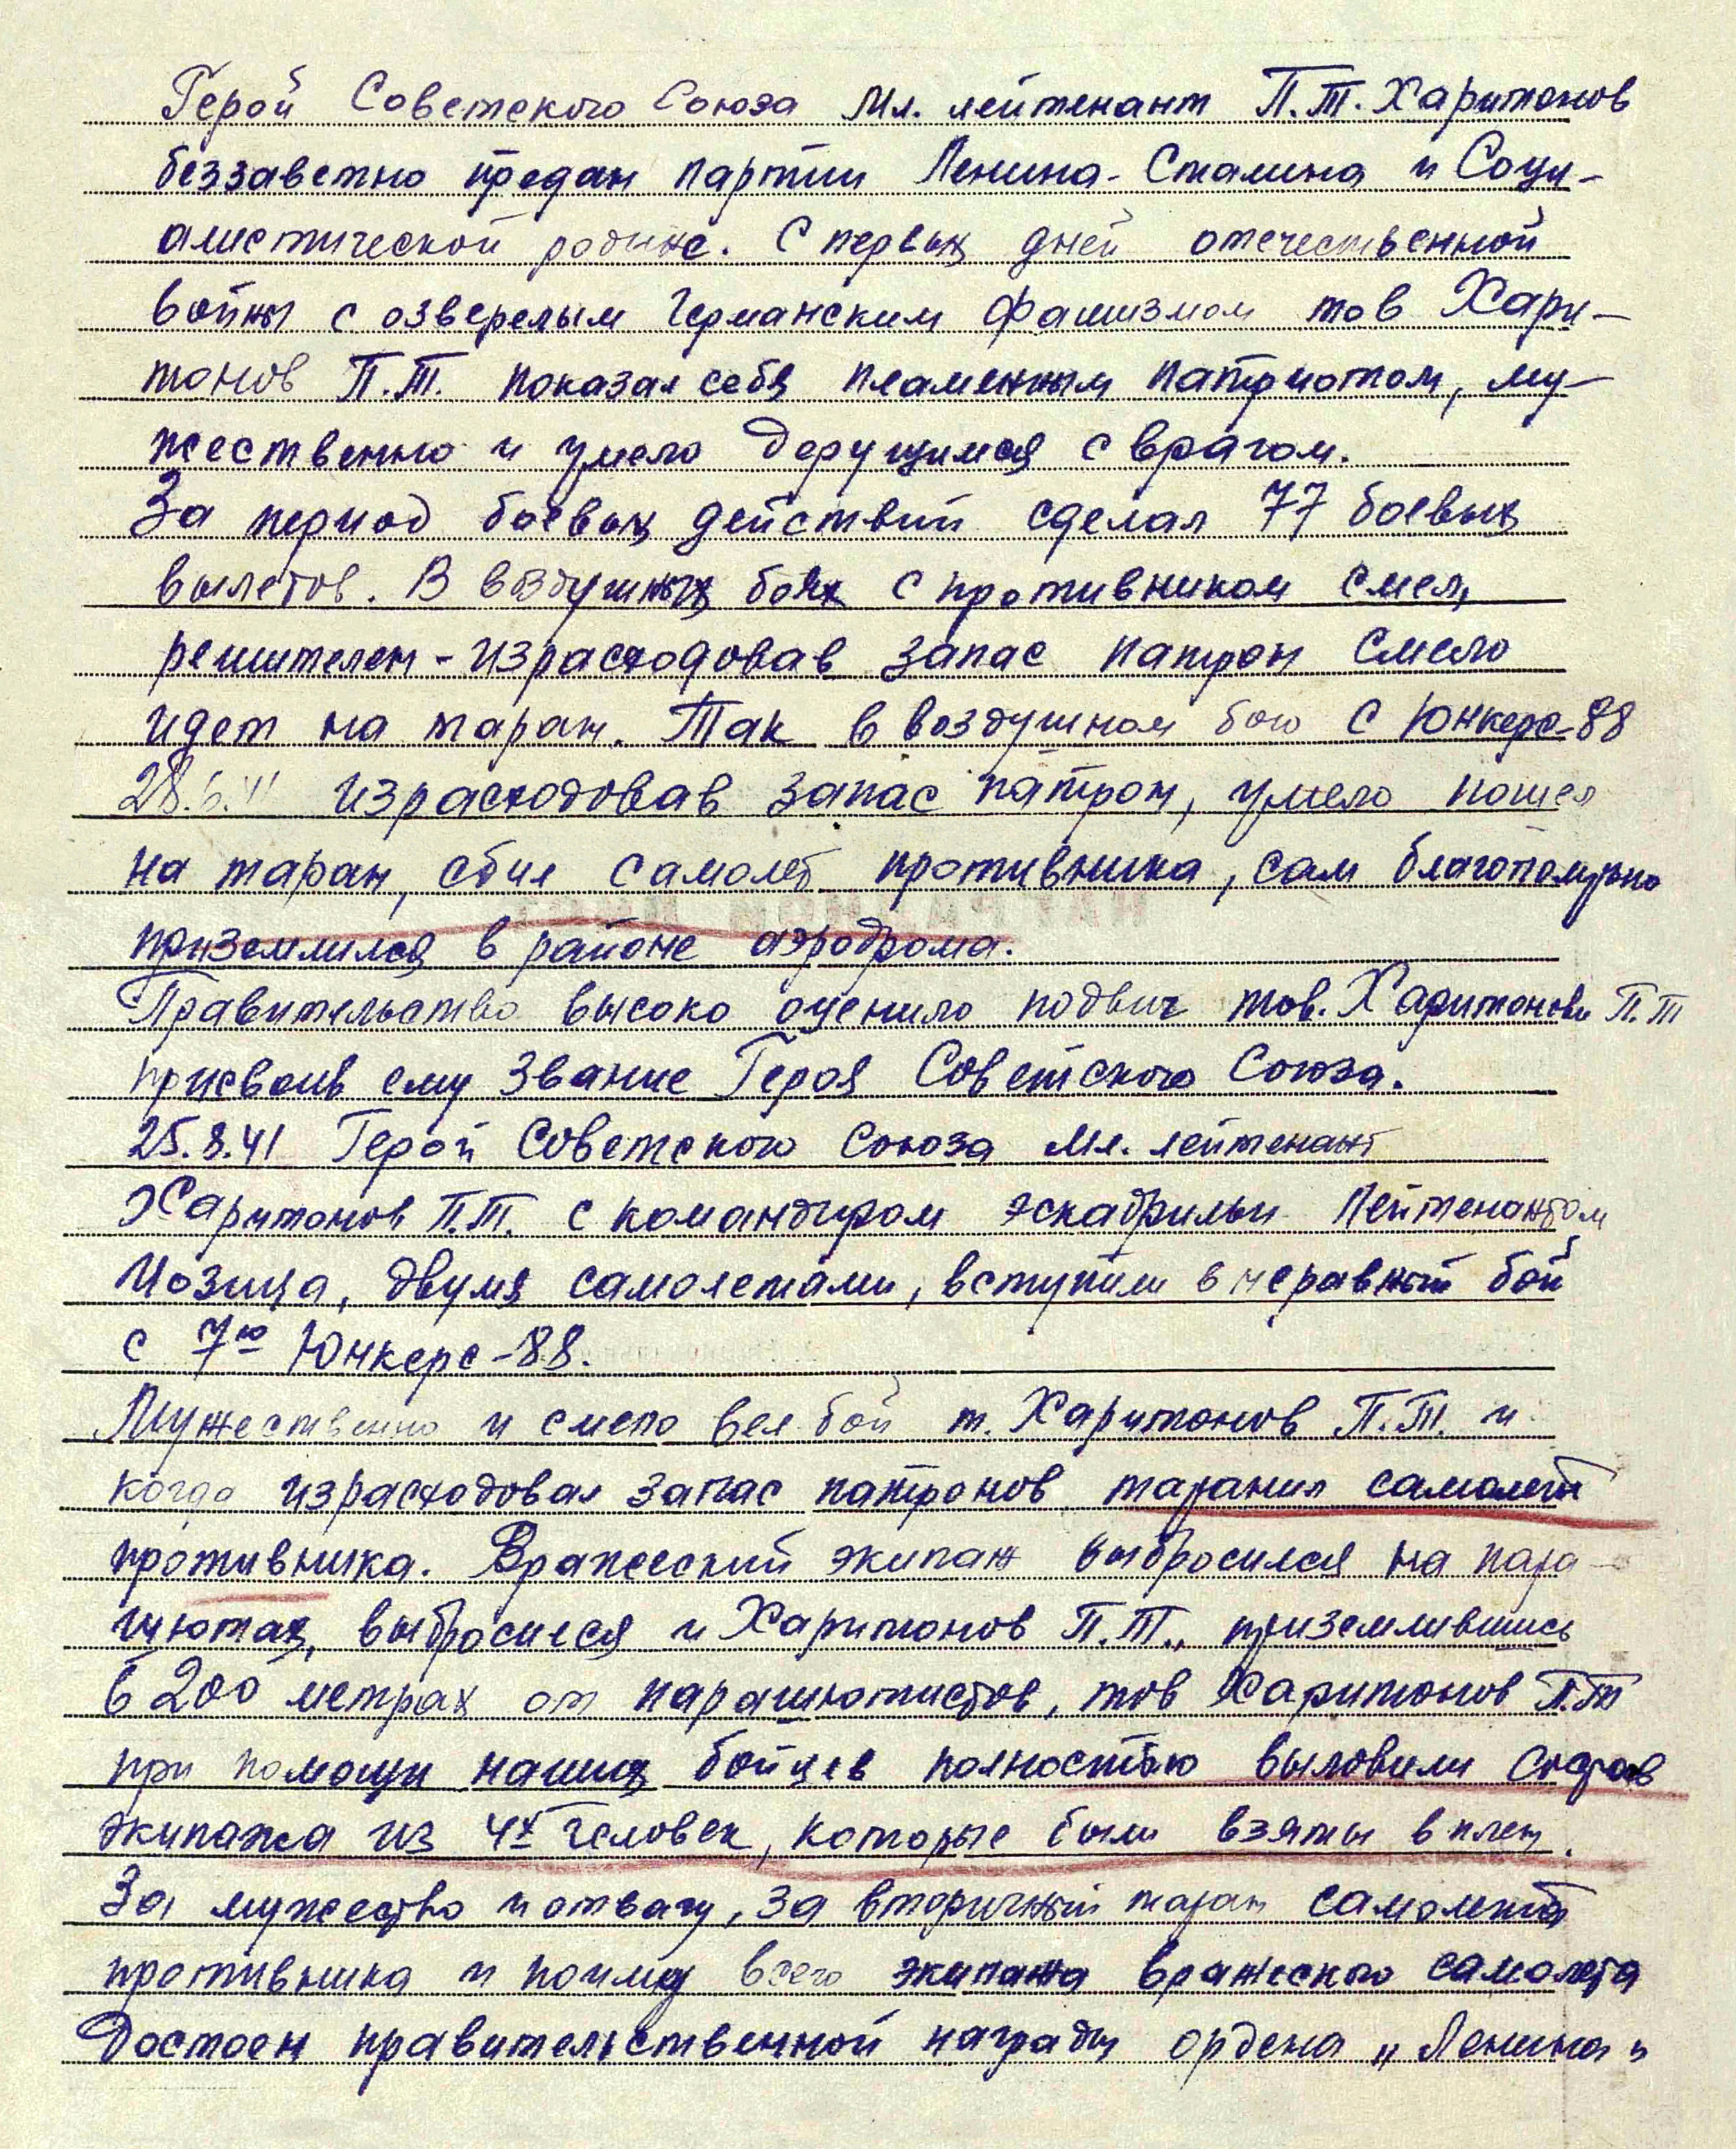 Герой Советского Союза мл. лейтенант П.Т. Харитонов
беззаветно предан партии Ленина-Сталина и Соци-
алистической родине. С первых дней отечественной
войны с озверелым Германским фашизмом тов Хари-
тонов П.Т. показал себя пламенным патриотом, му-
жественно и умело дерущимся с врагом.
За период боевых действий сделал 77 боевых
вылетов. В воздушных боях с противником смел,
решителен - израсходовав запас патрон смело
идет на таран. Так в воздушном бою с Юнкерс-88
28.6.41 израсходовав запас патрон, умело пошел
на таран, сбил самолет противника, сам благополучно
приземлился в районе аэродрома.
Правительство высоко оценило подвиг тов. Харитонова П.Т
присвоив ему звание Героя Советского Союза.
25.8.41 Герой Советского Союза мл. лейтенант
Харитонов П.Т. с командиром эскадрильи Лейтенантом
Иозица, двумя самолетами, вступили в неравный бой
с 7ю Юнкерс-88.
Мужественно и смело вел бой т. Харитонов П.Т. и
когда израсходовал запас патронов таранил самолет
противника. Вражеский экипаж выбросился на пара-
шютах, выбросился и Харитонов П.Т., приземлившись
в 200 метрах от парашютистов, тов Харитонов П.Т
при помощи наших бойцев полностью выловили состав
экипажа из 4х человек, которые были взяты в плен.
За мужество и отвагу, за вторичный таран самолета
противника и поимку всего экипажа вражеского самолета
Достоен правительственной награды ордена „Ленина"